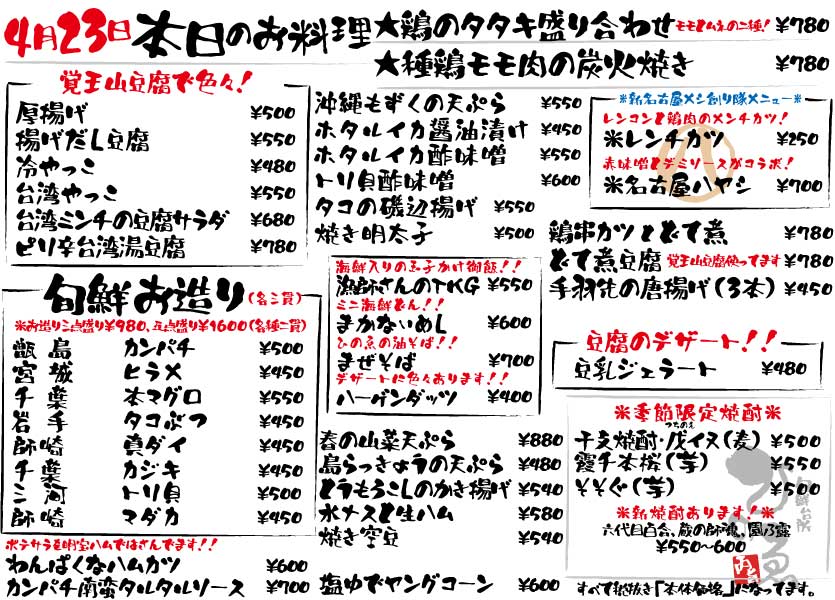 4月23日 本日のお料理
★鶏のタタキ盛り合わせ モモとムネの二種! ¥780
★種鶏モモ肉の炭火焼き ¥780
覚王山豆腐で色々!
厚揚げ ¥500
揚げだし豆腐 ¥550
冷やっこ ¥480
台湾やっこ ¥550
台湾ミンチの豆腐サラダ ¥680
ピリ辛台湾湯豆腐 ¥780
旬鮮お造り(各二貫)
※お造り三点盛り¥980、五点盛り¥1600(各種二貫)
甑島 カンパチ ¥500
宮城 ヒラメ ¥450
千葉 本マグロ ¥550
岩手 タコぶつ ¥450
師崎 真ダイ ¥450
千葉 カジキ ¥450
三河 トリ貝 ¥500
師崎 マダカ ¥450
ポテサラを明宝ハムではさんでます!!
わんぱくなハムカツ ¥600
カンパチ南蛮タルタルソース ¥700
沖縄もずくの天ぷら ¥550
ホタルイカ醤油漬け ¥450
ホタルイカ酢味噌 ¥550
トリ貝酢味噌 ¥600
タコの磯辺揚げ ¥550
焼き明太子 ¥500
海鮮入りの玉子かけ御飯!!
漁師さんのTKG ¥550
ミニ海鮮どん!!
まかないめし ¥600
ひの魚の油そば!!
まぜそば ¥700
デザートに色々あります!!
ハーゲンダッツ ¥400
春の山菜天ぷら ¥880
島らっきょうの天ぷら ¥480
とうもろこしのかき揚げ ¥540
水ナスと生ハム ¥580
焼き空豆 ¥540
塩ゆでヤングコーン ¥600
※新名古屋メシ創り隊メニュー※
レンコンと鶏肉のメンチカツ!
※レンチカツ ¥250
赤味噌とデミソースがコラボ!
※名古屋ハヤシ ¥700
鶏串カツとどて煮 ¥780
どて煮豆腐 覚王山豆腐使ってます ¥780
手羽先の唐揚げ(3本) ¥450
豆腐のデザート!!
豆乳ジェラート ¥480
※季節限定焼酎※
つちのえ
干支焼酎・戊イヌ(麦) ¥500
霞千本桜(芋) ¥550
そそぐ(芋) ¥500
※新焼酎あります!※
六代目百合、蔵の師魂、園乃露
¥550~600
旬鮮台所
すべて税抜き「本体価格」になってます。